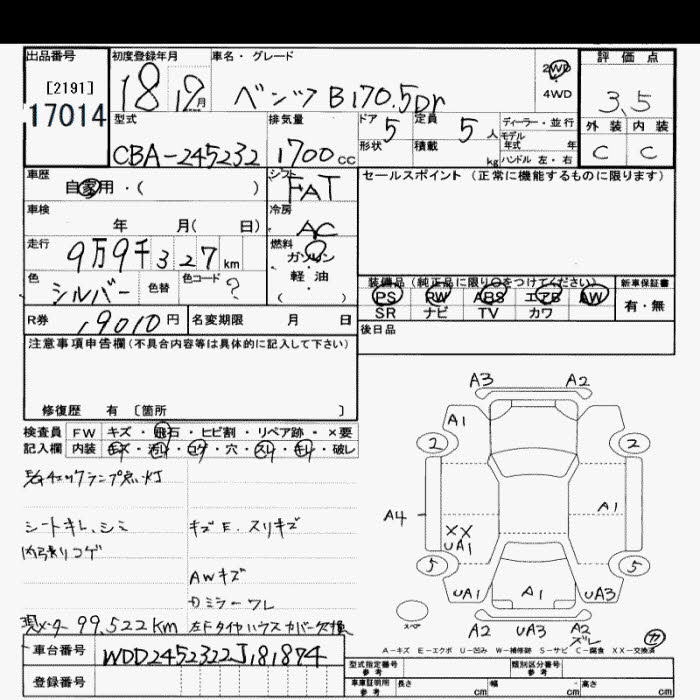 出品番号
[2191]
17014
初度登録年月
18 12月
車名・グレード
ベンツ B170.5Dr
2WD
4WD
評価点
3.5
外装 内装
C C
型式
CBA-245232
排気量
1700 cc
ドア 5
形状
定員 5 人
積載 kg
ディーラー・並行
モデル年式 年
ハンドル 左・右
車歴
自家用・( )
シフト
FAT
セールスポイント(正常に機能するものに限ります)
車検
年 月( 日)
冷房
AC
走行
9万9千327km
燃料
ガソリン
軽・油
( )
色
シルバー
色替
色コード ?
装備品(純正品に限り○をつけてください)
PS PW ABS エアB AW
SR ナビ TV カワ
新車保証書
有・無
R券 19010円
名変期限 月 日
後日品
注意事項申告欄(不具合内容等は具体的に記入して下さい)
修復歴 有 〔箇所 〕
検査員 FW キズ・飛石・ヒビ割・リペア跡・×要
記入欄 内装 キズ・汚れ・コゲ・穴・スレ・キレ・破レ
チェックランプ点灯
シートキレ、シミ
キズE.スリキズ
内張りコゲ
AWキズ
Dミラーワレ
現メーター 99,522km
左Fタイヤハウスカバー欠損
A3 A2
A1
2 2
A1
A4
XX
UA1
5 5
UA1 A1 UA3
スペア
A2 UA3 A2
ズレ
カ
A-キズ E-エクボ U-凹み W-補修跡 S-サビ C-腐食 XX-交換済
車台番号 WDD2452322J181874
登録番号
型式指定番号
参考
類別区分番号
参考
車庫証明用
参考
長さ cm 幅 cm 高さ cm